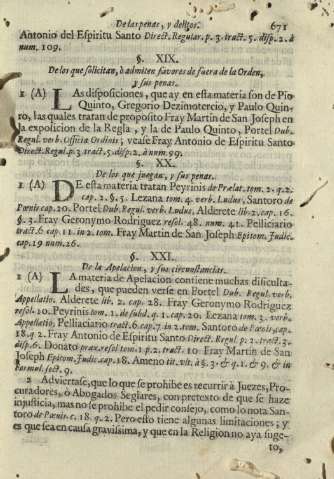 De las penas, y delitos. 671
Antonio del Espiritu Santo Direct. Regular. p. 3. tract. 5. disp. 2. à
num. 109.
§. XIX.
De los que solicitan, ò admiten favores de fuera de la Orden,
y sus penas.
1 (A) LAs disposiciones, que ay en esta materia son de Pio
Quinto, Gregorio Dezimotercio, y Paulo Quin-
to, las quales tratan de proposito Fray Martin de San Joseph en
la exposicion de la Regla, y la de Paulo Quinto, Portel Dub.
Regul. verb. Officia Ordinis; vease Fray Antonio de Espiritu Santo
Direct. Regul. p. 3. tract. 5. disp. 2. à num. 99.
§. XX.
De los que juegan, y sus penas.
1 (A) DE esta materia tratan Peyrinis de Prælat. tom. 2. q. 2.
cap. 2. §. 5. Lezana tom. 4. verb. Ludus, Santoro de
Pœnis cap. 20. Portel Dub. Regul. verb. Ludus, Alderete lib. 2. cap. 16.
§. 3. Fray Geronymo Rodriguez resol. 48. num. 41. Pelliciario
tract. 6. cap. 11. in 2. tom. Fray Martin de San Joseph Epitom. Judic.
cap. 19 num. 26.
§. XXI.
De la Apelacion, y sus circunstancias.
1 (A) LA materia de Apelacion contiene muchas dificulta-
des, que pueden verse en Portel Dub. Regul. verb.
Appellatio. Alderete lib. 2. cap. 28. Fray Geronymo Rodriguez
resol. 10. Peyrinis tom. 1. de subd. q. 1. cap. 20. Lezana tom. 3. verb.
Appellatio, Pelliaciario tract. 6. cap. 7. in 2. tom. Santoro de Pœnis, cap.
18. q. 2. Fray Antonio del Espiritu Santo Direct. Regul. p. 2. tract. 3.
disp. 6. Donato prax. resol. tom. 1. p. 2. tract. 10. Fray Martin de San
Joseph Epitom. Judic. cap. 18. Ameno tit. vit. à §. 3. & q. 1. & 9. & in
formul. sect. 9.
2 Adviertase, que lo que se prohibe es recurrir à Juezes, Pro-
curadores, ò Abogados Seglares, con pretexto de que se haze
injusticia, mas no se prohibe el pedir consejo, como lo nota San-
toro de Pœnis. c. 18. q. 2. Pero esto tiene algunas limitaciones; y
es que sea en causa gravissima, y que en la Religion no aya suge-
to,